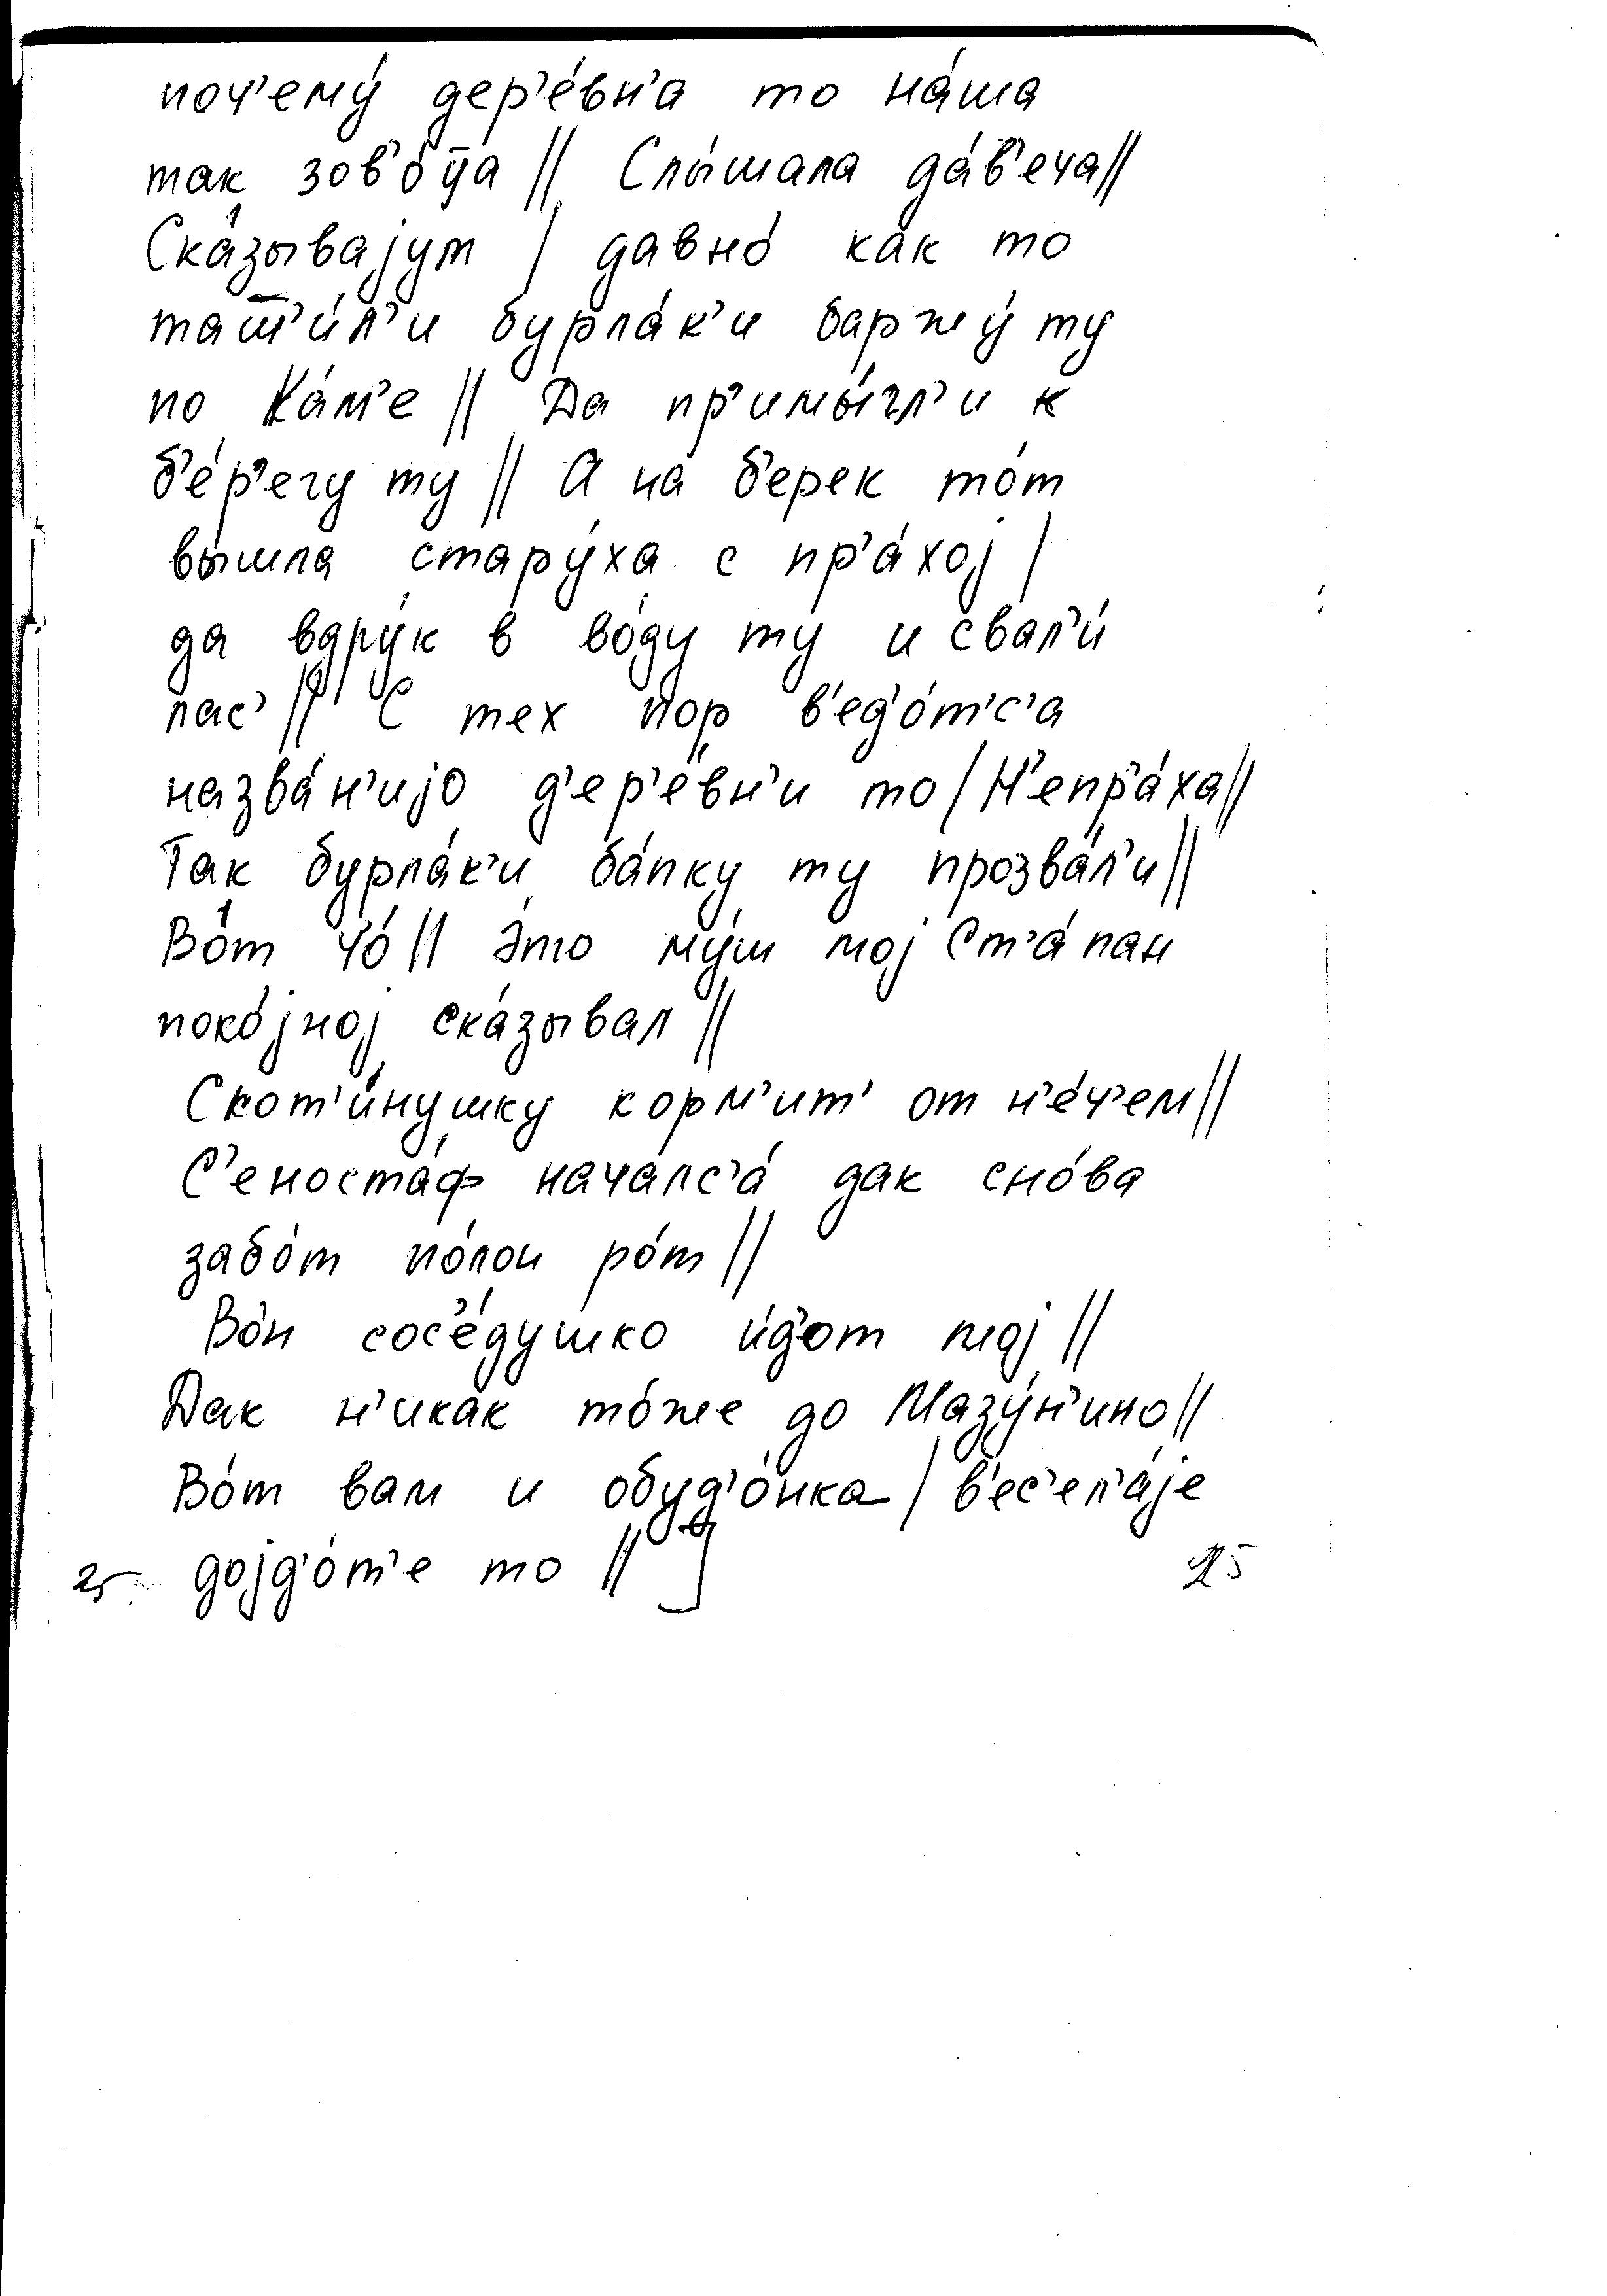 поч'ему́ дер'е́вн'а то на́ша
так зов'о́ца // Слы́шала да́в'еча //
Ска́зывајут / давно́ ка́к то
таш̅'и́л'и бурла́к'и баржу́ ту
по Ка́м'е // Да пр'имы́гл'и к
б'е́р'егу ту // А на́ б'ерек то́т
вы́шла стару́ха с пр'а́хој /
да вдру́к в во́ду ту и свал'и́
лас' // С тех пор в'ед'о́т'с'а
назва́н'ијо д'ер'е́вн'и то / Н'епр'а́ха //
Так бурла́к'и ба́пку ту прозва́л'и //
Во́т чо́ // Э́то му́ш мој Ст'а́пан
поко́јној ска́зывал //
Скот'и́нушку корм'ит' от н'е́ч'ем //
С'еноста́ф начался'а́ дак сно́ва
забо́т по́лон ро́т //
Во́н сос'е́душко ид'о́т мој //
Дак н'ика́к то́же до Мазу́н'ино //
Во́т вам и обуд'о́нка / в'ес'ел'а́је
25 дојд'о́т'е то // ] 25